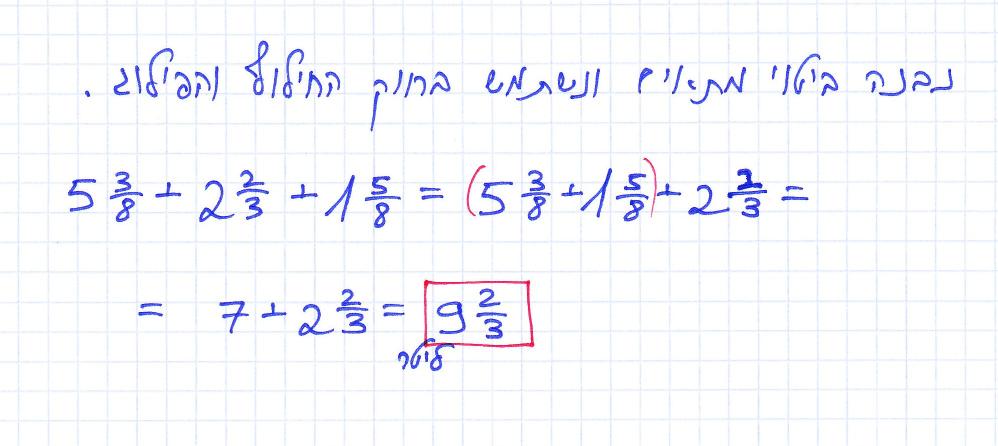 נבנה ביטוי מתאים ונשתמש בחוק החילוף והקילוג .
5 3/8 + 2 2/3 + 1 5/8 = (5 3/8 + 1 5/8) + 2 2/3 =
= 7 + 2 2/3 = 9 2/3
ליטר